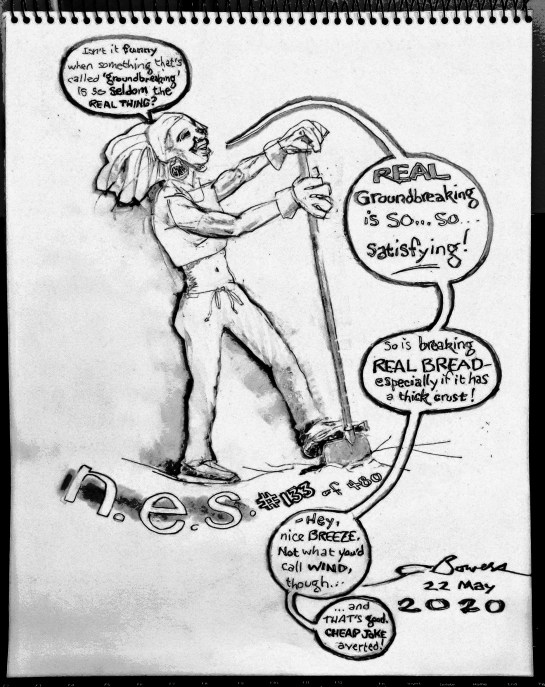 Isn't it funny
when something that's
called 'groundbreaking'
is so seldom the
REAL THING?
REAL
Groundbreaking
is so... so...
satisfying!
So is breaking
REAL BREAD-
especially if it has
a thick crust!
-Hey,
nice BREEZE.
Not what you'd
call WIND,
though...
...and
THAT'S good.
CHEAP JOKE
averted!
n.e.s. #133 of 480
Bowers
22 May
2020